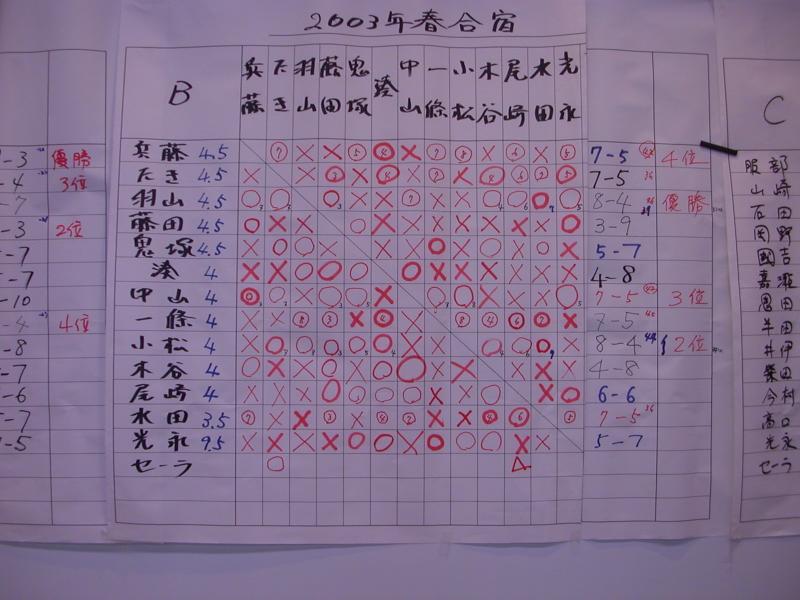 2003年春合宿
B
兵藤 たき 羽山 藤田 鬼塚 湊 中山 一條 小松 木谷 尾崎 水田 光永
兵藤 4.5 7-5 4位
たき 4.5 7-5
羽山 4.5 8-4 優勝
藤田 4.5 3-9
鬼塚 4.5 5-7
湊 4 4-8
中山 4 7-5 3位
一條 4 7-5
小松 4 8-4 2位
木谷 4 4-8
尾崎 4 6-6
水田 3.5 7-5
光永 9.5 5-7
セーラ
-3 優勝
-4 3位
-7
-3 2位
-7
-7
-10
-4 4位
-8
-7
-6
-7
-5
C
服部
山崎
石田
岡野
國吉
恩田
半田
井伊
柴田
今村
高口
光永
セーラ